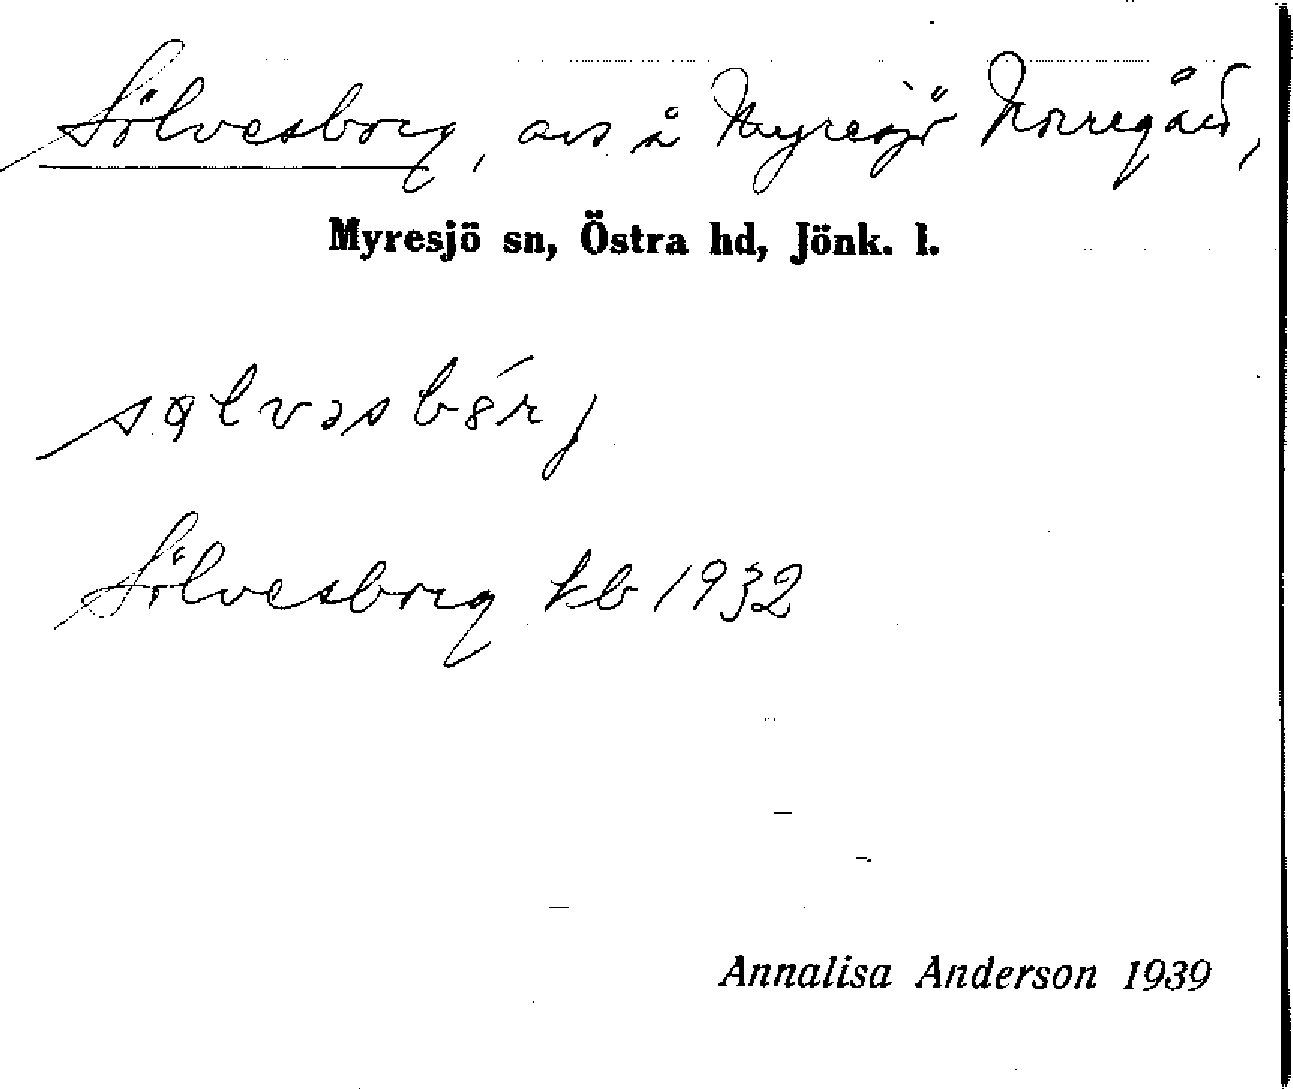 Sölvesborg, avs å Myresjö Norregård,
Myresjö sn, Östra hd, Jönk. l.
Sölvesborg kb 1932
Annalisa Anderson 1939